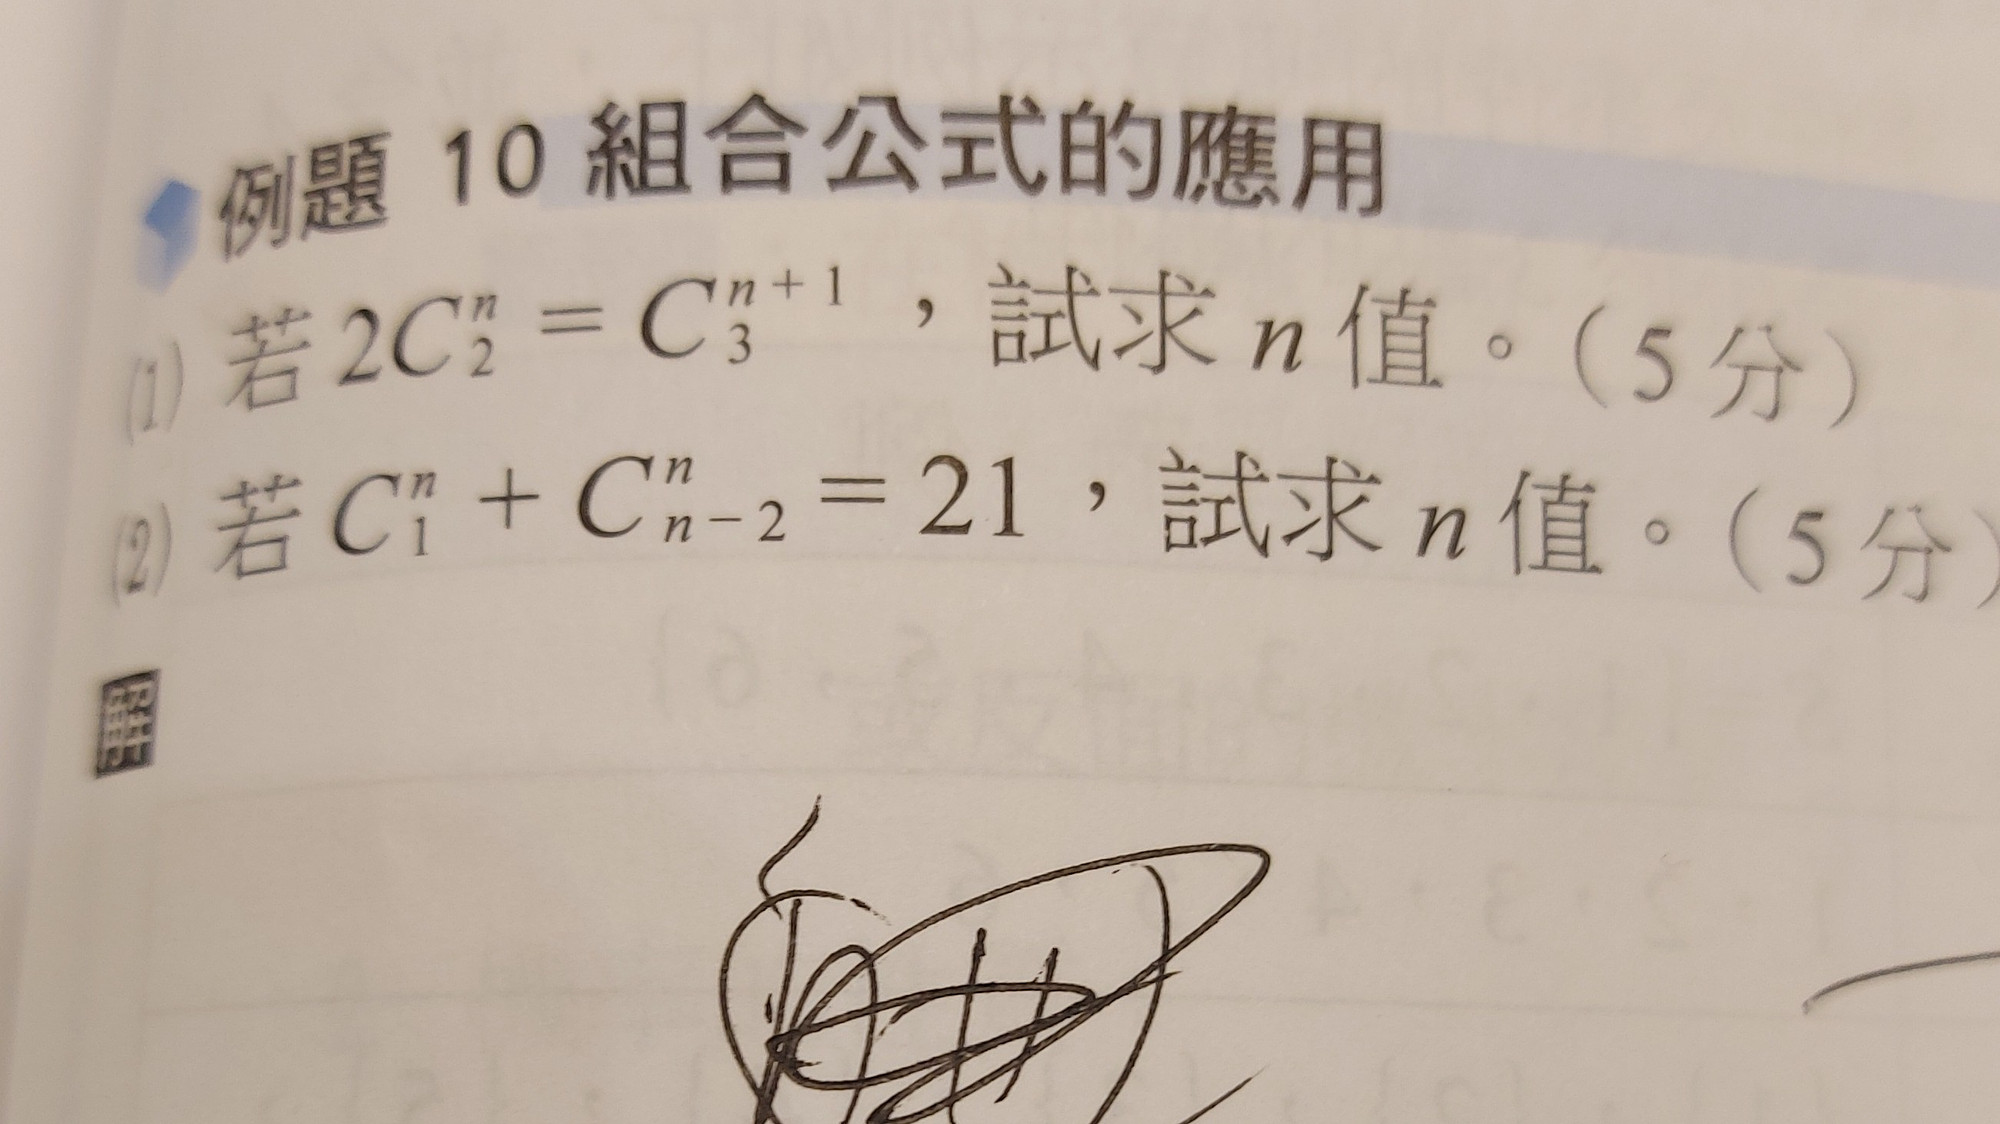 例題 10 組合公式的應用
(1) 若 2C₂ⁿ = C₃ⁿ⁺¹，試求 n 值。(5 分)
(2) 若 C₁ⁿ + Cₙ₋₂ⁿ = 21，試求 n 值。(5 分)
解